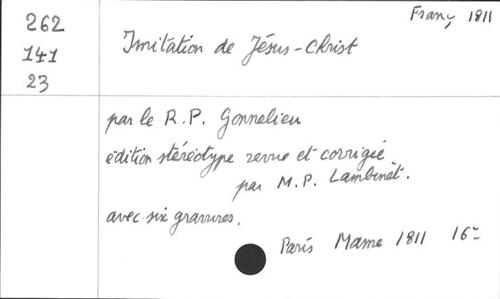 Franç 1811
262
141
23
Imitation de Jésus-Christ
par le R.P. Gonnelieu
édition stéréotype revue et corrigée
par M.P. Lambinet.
avec six gravures.
Paris Mame 1811 16°